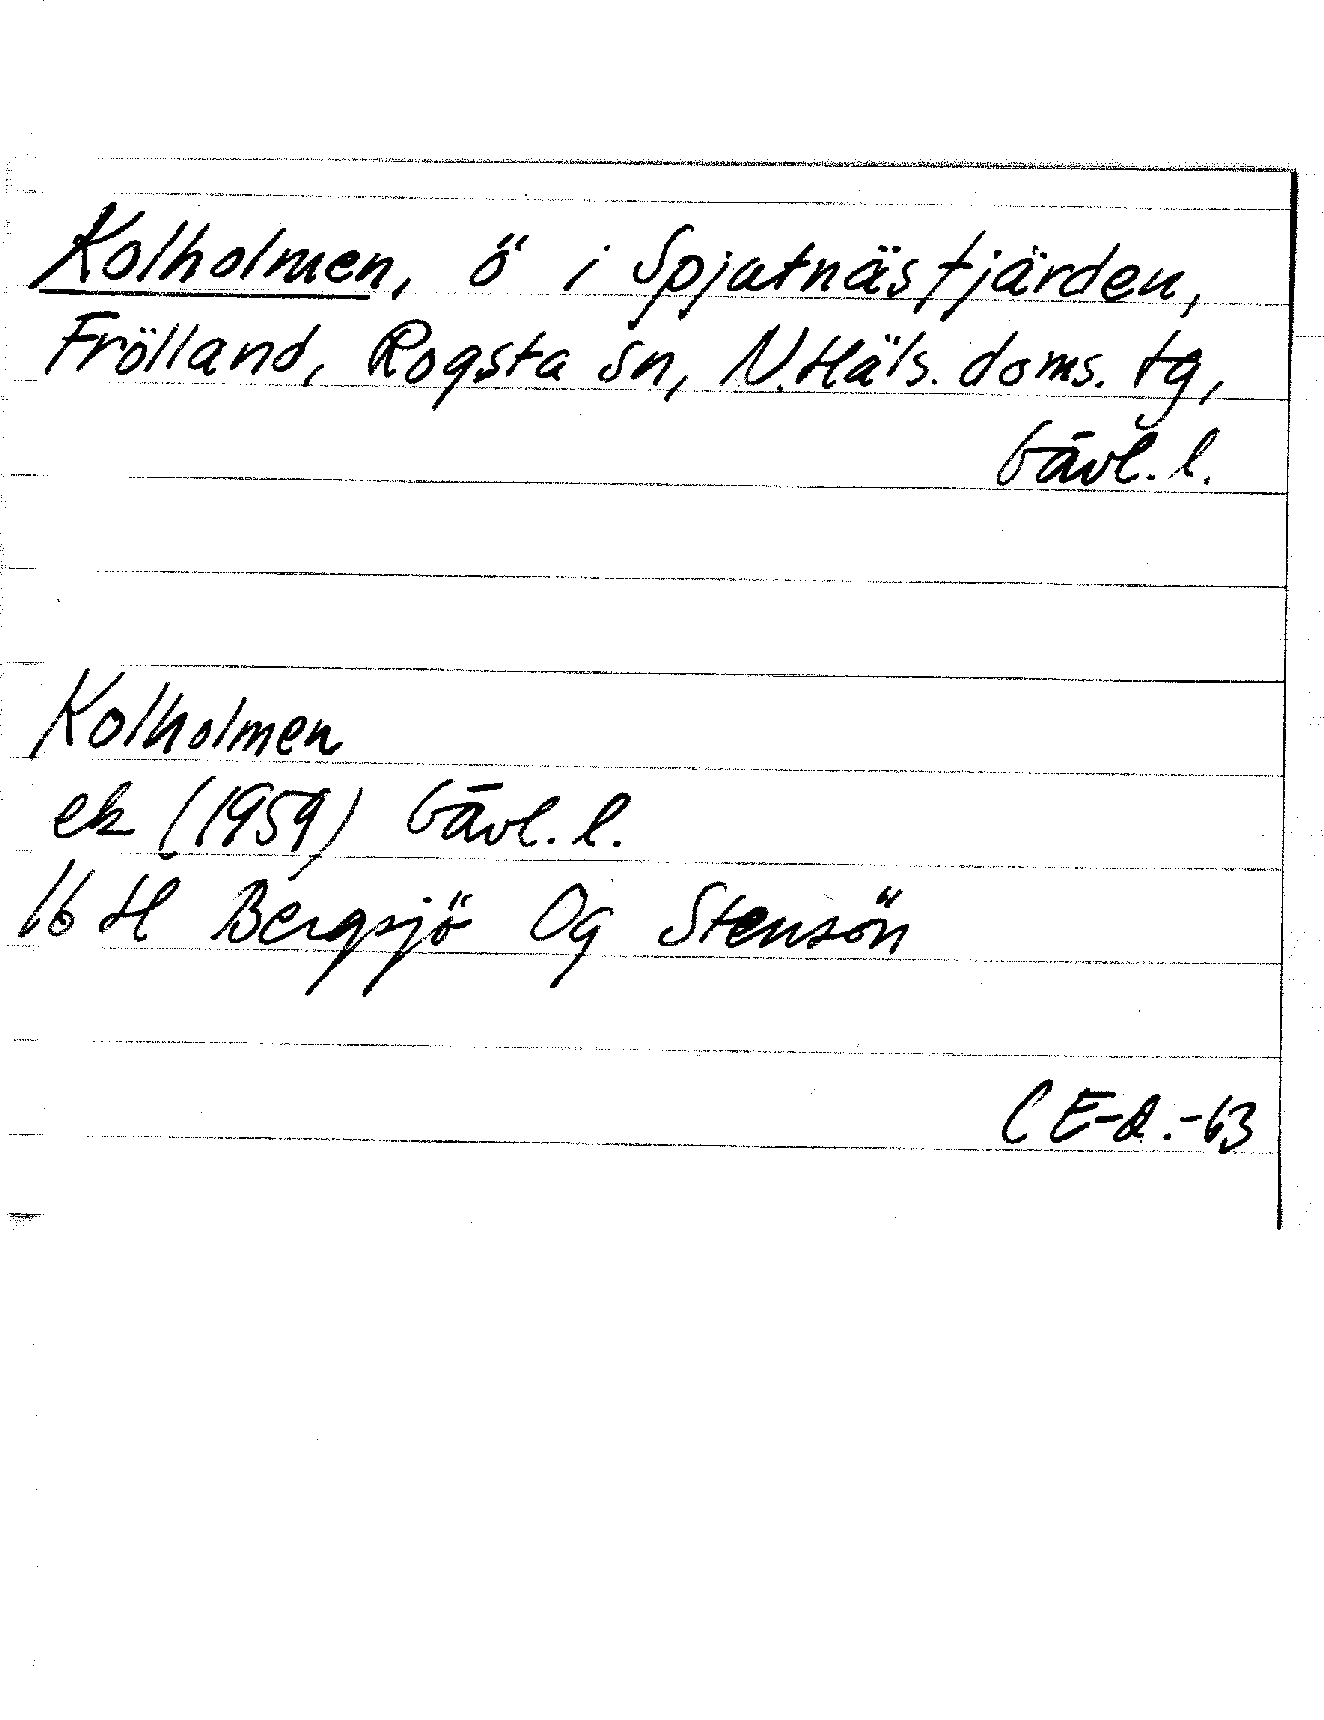 Kolholmen, ö i Spjutnäsfjärden,
Frölland, Rogsta sn, N.Häls. doms. tg,
Gävl. l.
Kolholmen
ek (1959) Gävl. l.
16 H Bergsjö 0g Stensön
C E-d.-63